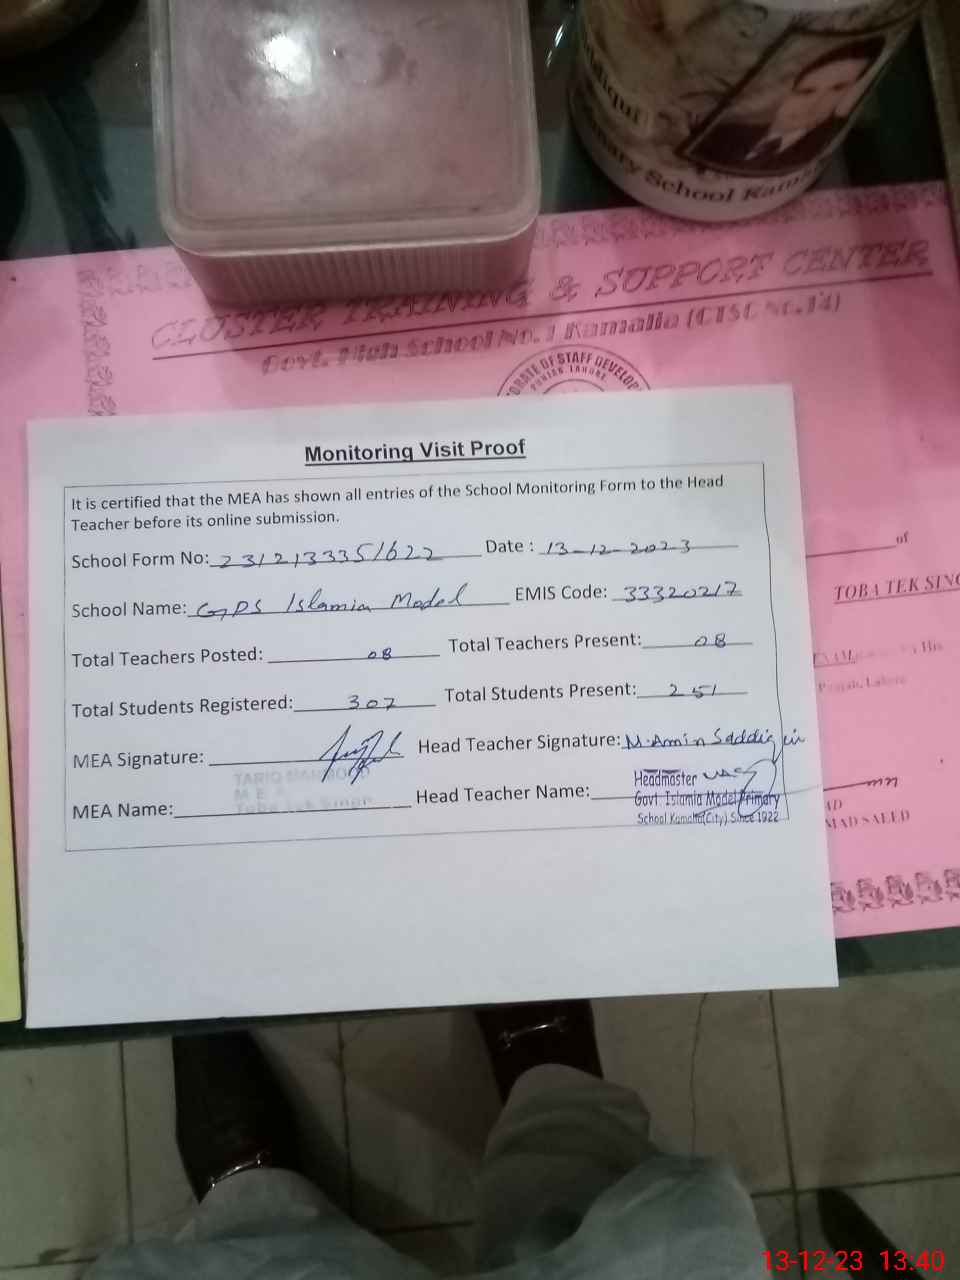 diqui
mary School Kama
CLUSTER TRAINING & SUPPORT CENTER
Govt. High School No. 1 Kamalia (CTSC No.14)
ORATE OF STAFF DEVELOP
PUNJAB LAHORE
Monitoring Visit Proof
It is certified that the MEA has shown all entries of the School Monitoring Form to the Head
Teacher before its online submission.
School Form No: 2312133351622 Date : 13-12-2023
School Name: GPS Islamia Model EMIS Code: 33320217
Total Teachers Posted: 08 Total Teachers Present: 08
Total Students Registered: 307 Total Students Present: 251
MEA Signature: Head Teacher Signature: M.Amin Saddiqui
TARIQ MAHMOOD
M E A
Toba Tek Singh
MEA Name: Head Teacher Name:
Headmaster
Govt. Islamia Model Primary
School Kamalia(City) Since 1922
of
TOBA TEK SING
Punjab, Lahore
AD
MAD SAEED
13-12-23 13:40